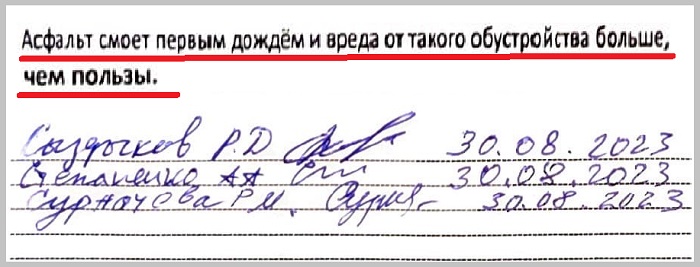 Асфальт смоет первым дождём и вреда от такого обустройства больше,
чем пользы.
Сыздыков Р.Д 30.08.2023
Степаненко АА 30.08.2023
Сургачёва Р.М. 30.08.2023